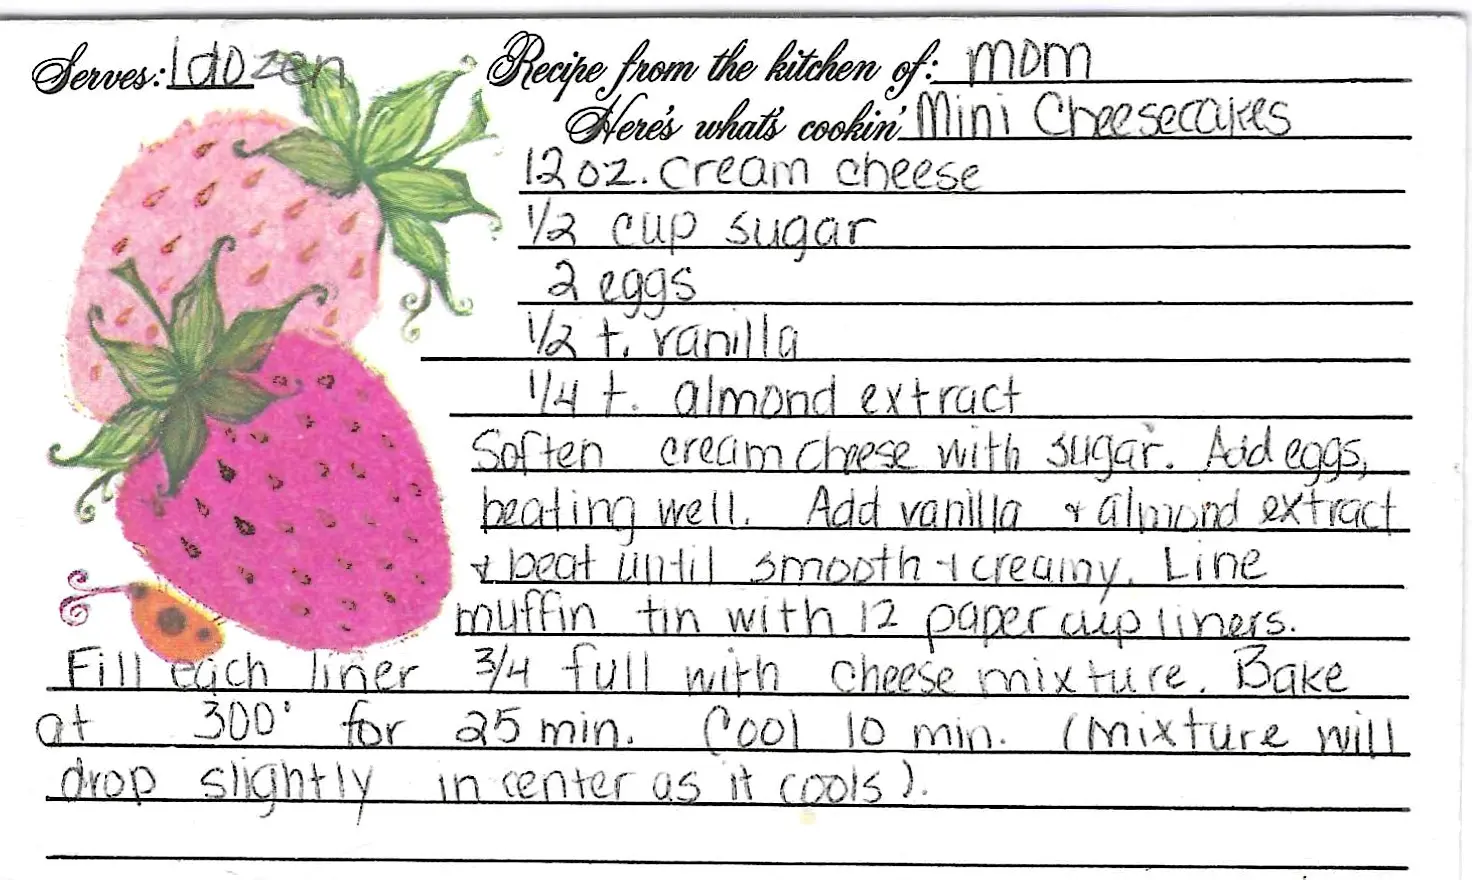 Serves: 1 dozen
Recipe from the kitchen of: mom
Here's what's cookin' Mini Cheesecakes
12 oz. cream cheese
1/2 cup sugar
2 eggs
1/2 t. vanilla
1/4 t. almond extract
Soften cream cheese with sugar. Add eggs,
beating well. Add vanilla & almond extract
& beat until smooth & creamy. Line
muffin tin with 12 paper cup liners.
Fill each liner 3/4 full with cheese mixture. Bake
at 300° for 25 min. Cool 10 min. (mixture will
drop slightly in center as it cools).